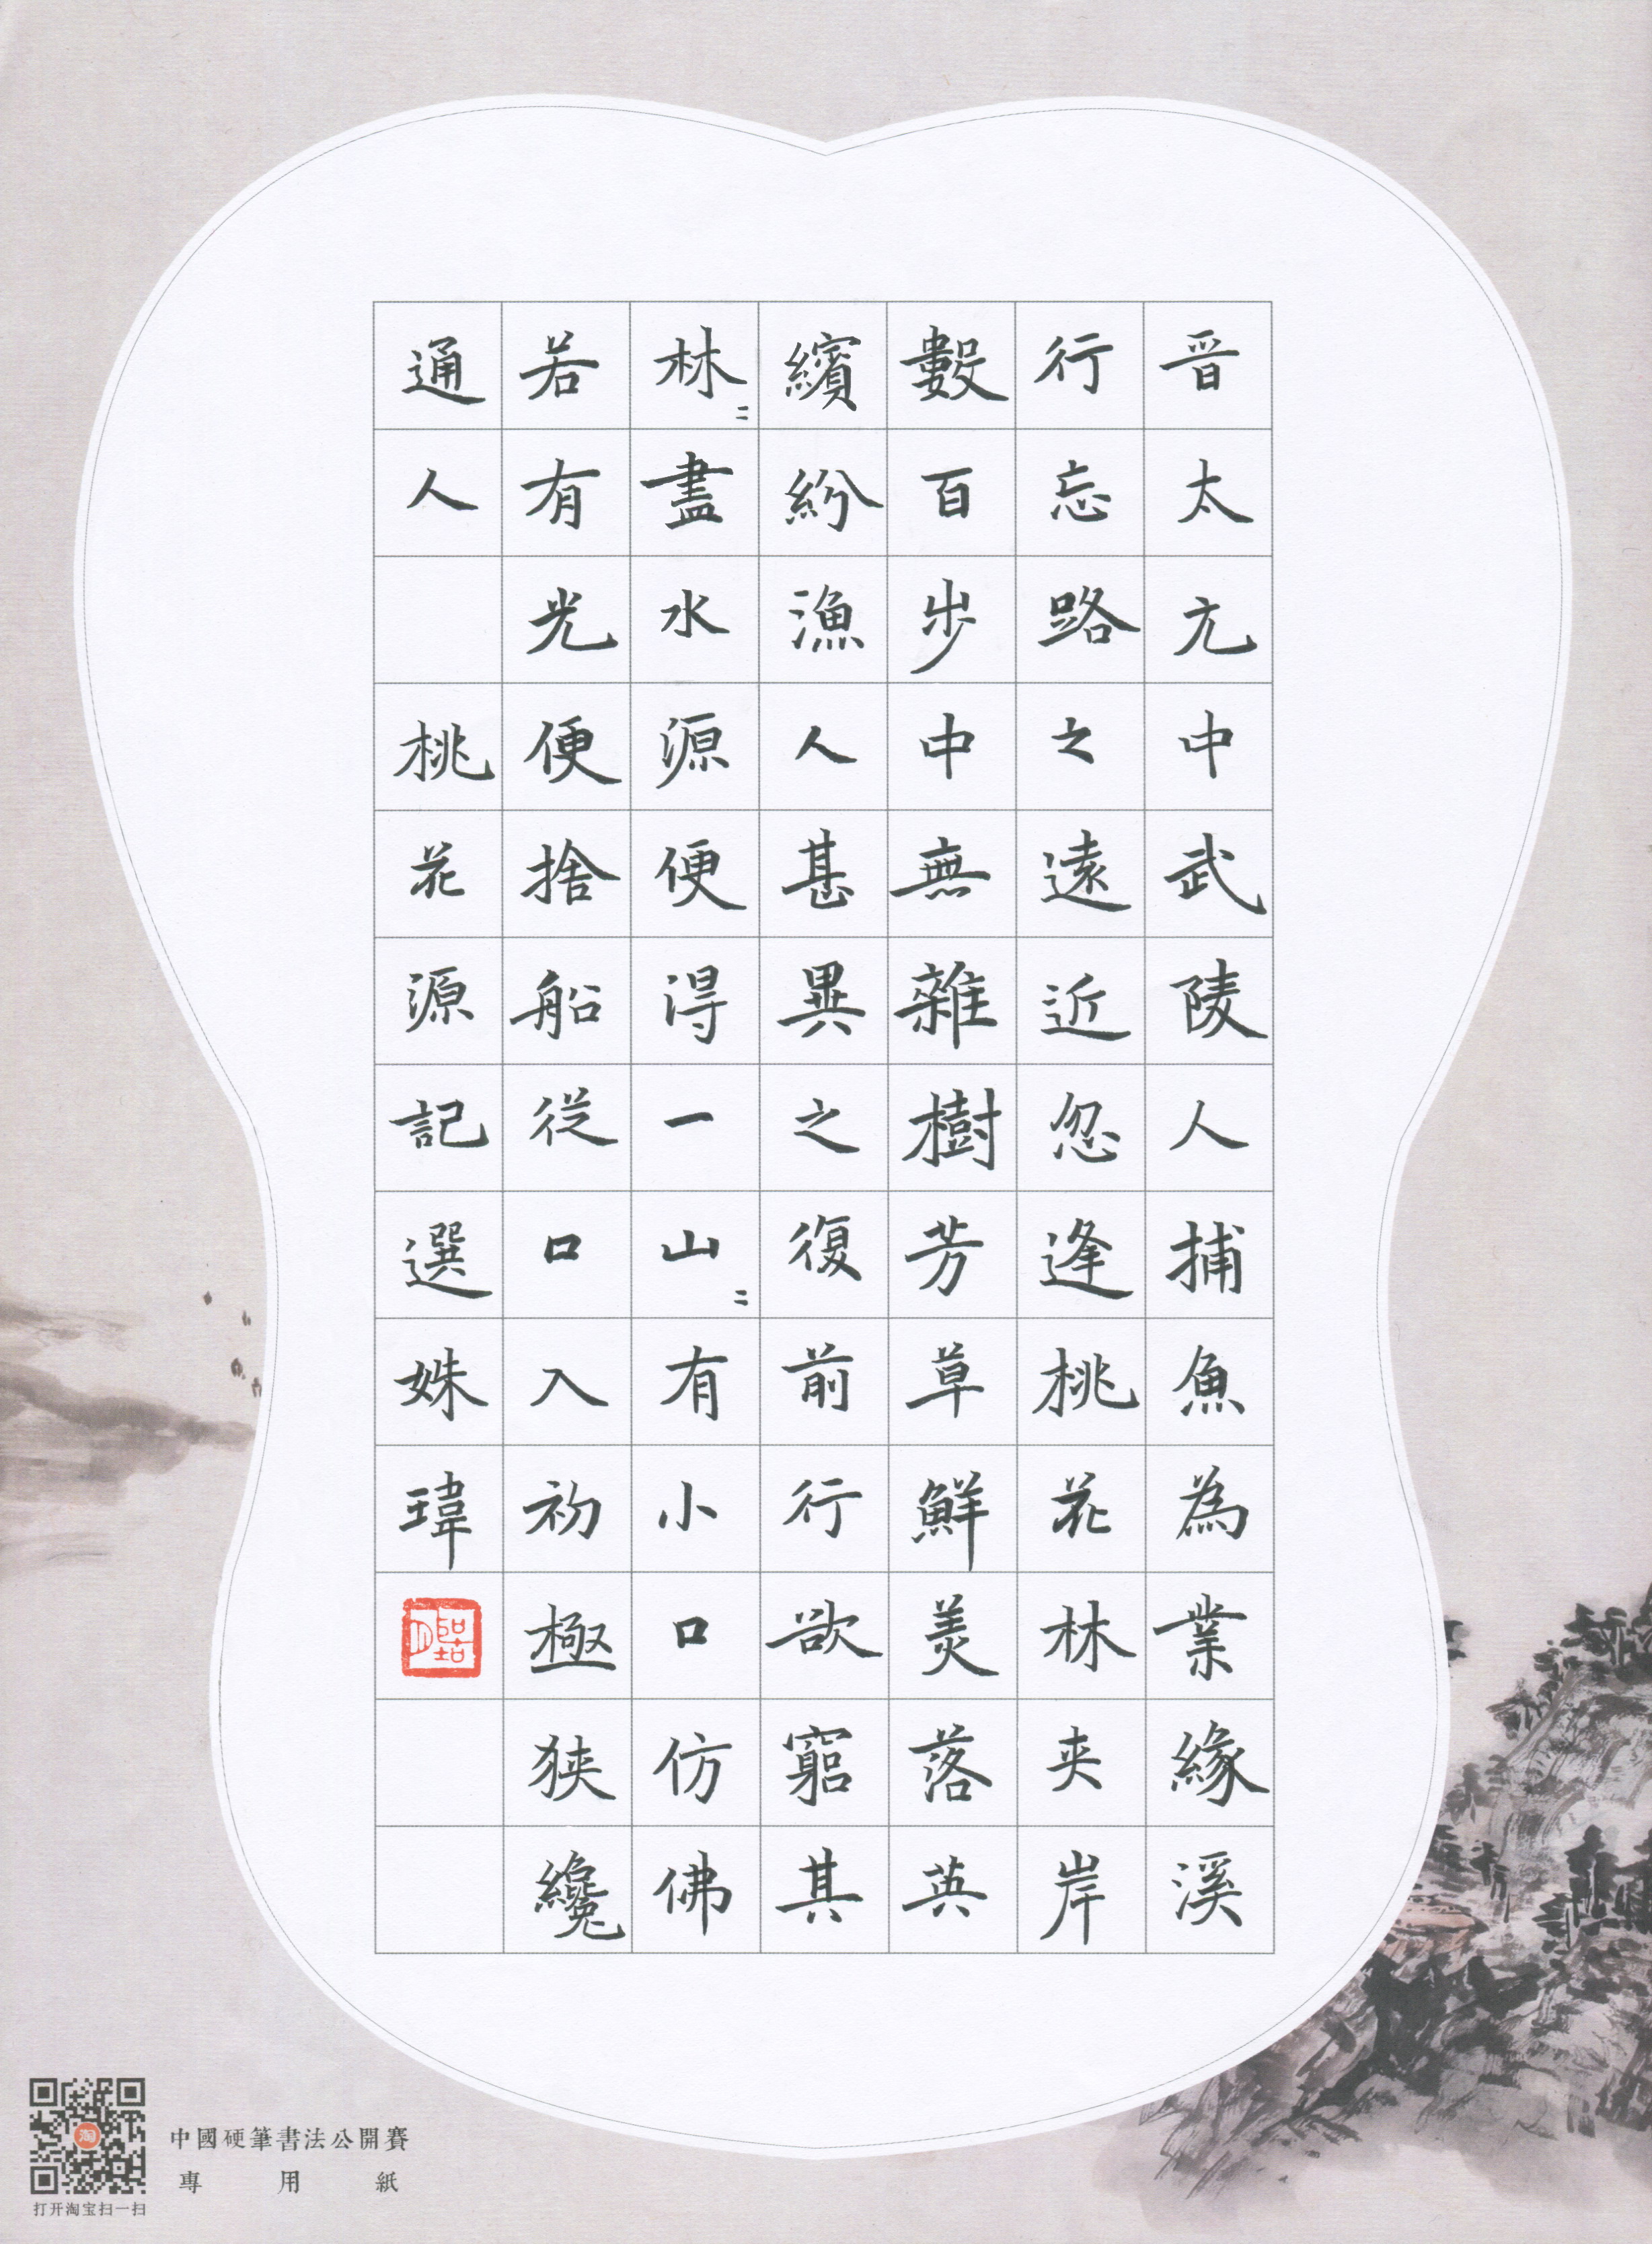 晋太亢中武陵人捕魚為業緣溪
行忘路之遠近忽逢桃花林夹岸
數百步中無雜樹芳草鮮美落英
繽紛漁人甚異之復前行欲窮其
林〻盡水源便得一山〻有小口仿佛
若有光便捨船從口入初極狭纔
通人 桃花源記選姝瑋
中國硬筆書法公開賽
專用紙
淘
打开淘宝扫一扫